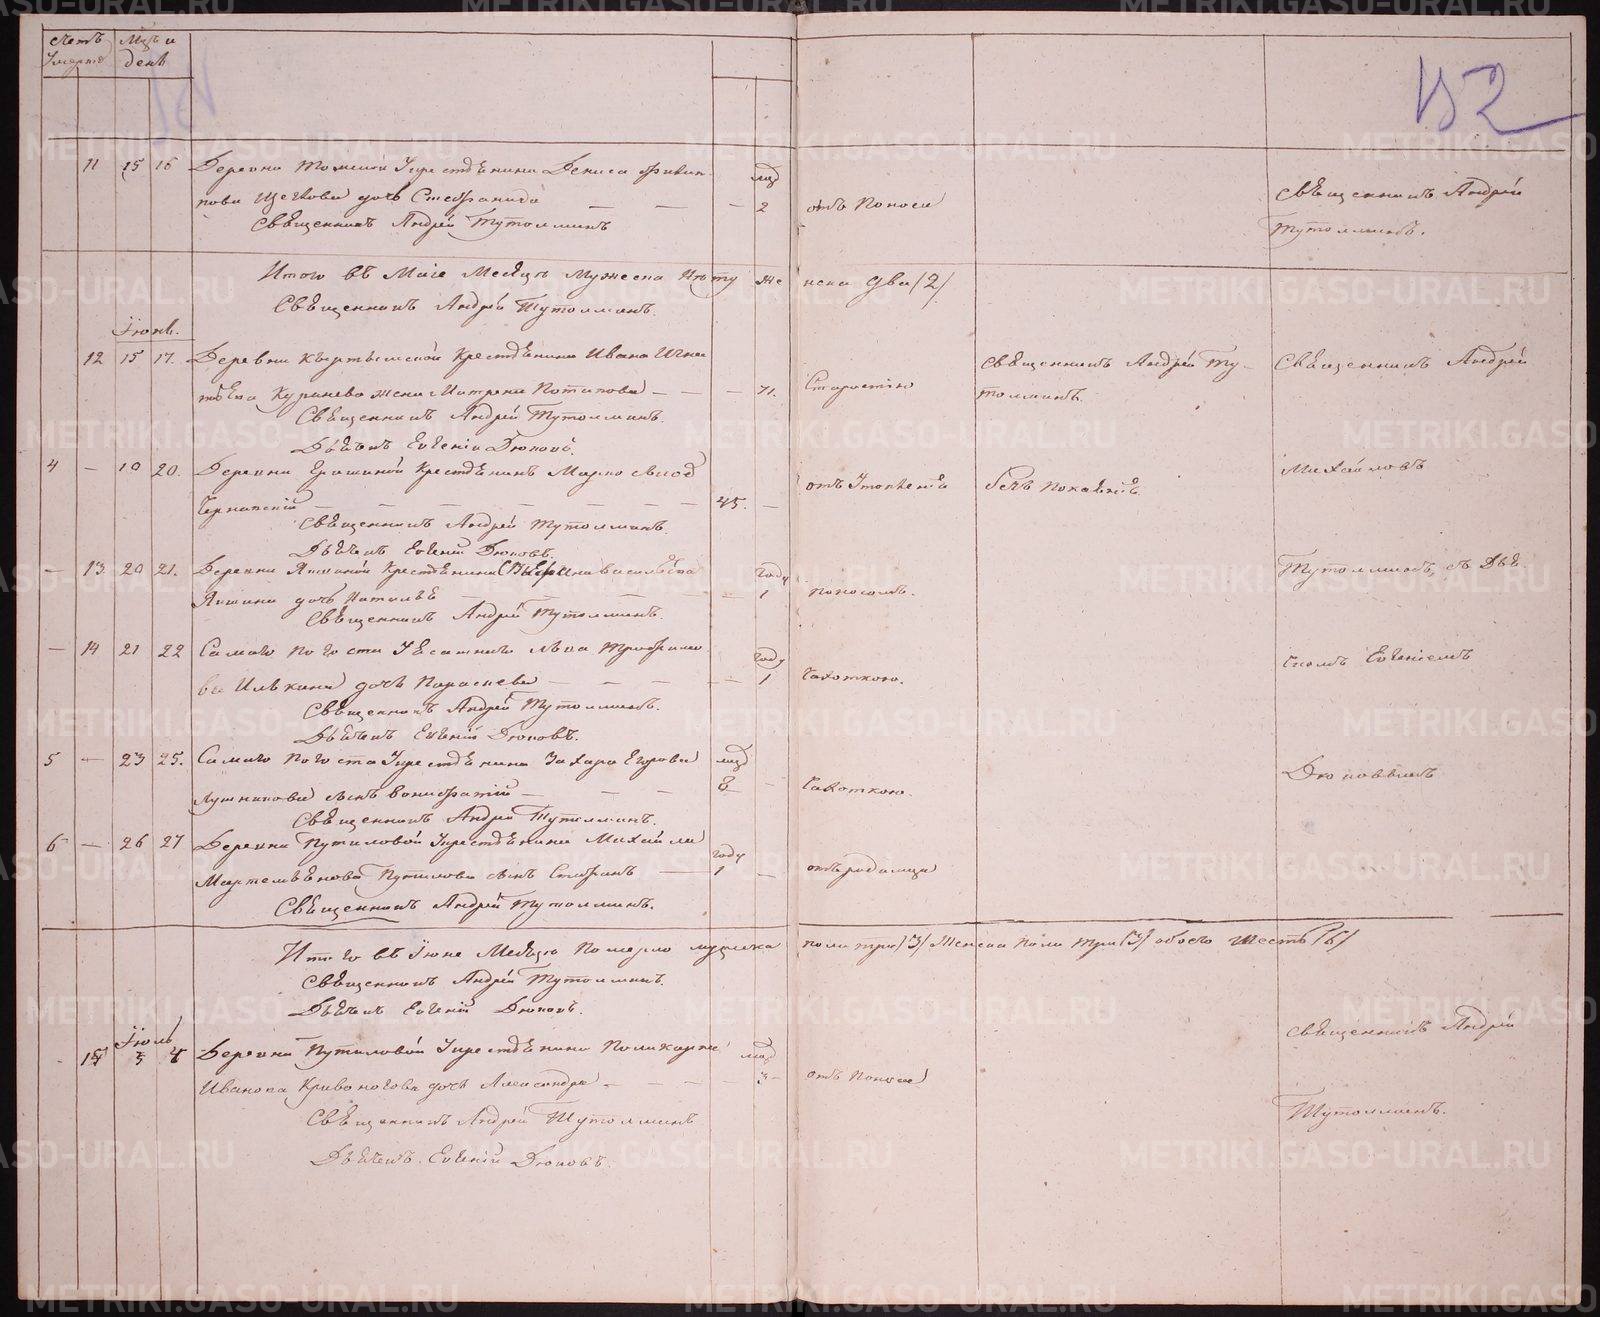 Счетъ умерш. Мѣс. и день
152
11 15 16 Деревни Томской крестьянина Дениса Филип
пова Щегкова дочь Стефанида — — — 2 отъ поноса
мѣс
Священникъ Андрей Тутолминъ
Священникъ Андрей
Тутолминъ.
Итого въ Маіе Месяцѣ Мужеска нѣту женска два /2/
Священникъ Андрей Тутолминъ.
Іюнь.
12 15 17. Деревни Кыртымской крестьянина Ивана Игна
тьева Курнева жена Матрена Потапова — — — 71. Старостію
Священникъ Андрей Ту-
толминъ.
Священникъ Андрей
Священникъ Андрей Тутолминъ.
Дьячекъ Евгеній Дюковъ.
4 — 19 20. Деревни крестьянинъ Марко
— — — 45. — отъ утопленія Безъ покаянія
Михайловъ
Священникъ Андрей Тутолминъ.
Дьячекъ Евгеній Дюковъ.
— 13 20 21. Деревни Яшиной крестьянина Васильева
Яшина дочь Наталья — — — году 1 поносомъ.
Тутолминъ, съ Дья-
Священникъ Андрей Тутолминъ.
— 14 21 22 Самаго погоста Трофимо
ва Илькина дочь Параскева — — — году 1 чахоткою.
чкомъ Евгеніемъ
Священникъ Андрей Тутолминъ.
Дьячекъ Евгеній Дюковъ.
5 — 23 25. Самаго погоста крестьянина Захара Егорова
Лушникова сынъ Вонифатій — — — мѣс 8 — чахоткою.
Дюковымъ
Священникъ Андрей Тутолминъ.
6 — 26 27 Деревни Путиловой крестьянина Михайла
Мартемьянова Путилова сынъ Стефанъ — году 1 — отъ родимца
Священникъ Андрей Тутолминъ.
Итого въ Іюне Месяцѣ померло мужеска пола три /3/ женска пола три /3/ обоего шесть /6/
Священникъ Андрей Тутолминъ.
Дьячекъ Евгеній Дюковъ.
Іюль
- 15 3 4 Деревни Путиловой крестьянина Поликарпа
Иванова Кривоногова дочь Александра — — — мѣс 3 — отъ поноса
Священникъ Андрей
Тутолминъ.
Священникъ Андрей Тутолминъ
Дьячекъ Евгеній Дюковъ.
METRIKI.GASO-URAL.RU